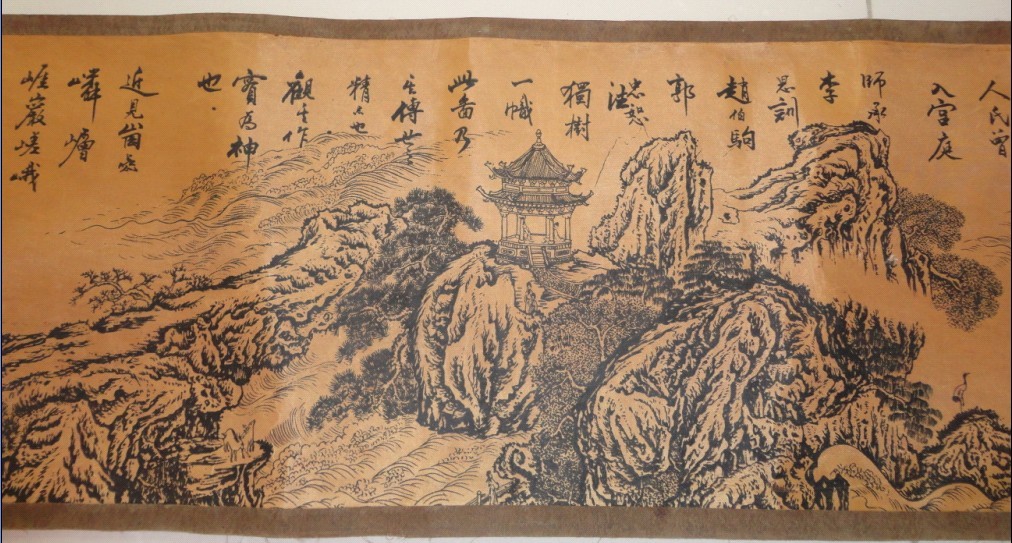 人民曾
入宫庭
師承
李
思訓
趙伯駒
郭
忠恕
法
獨樹
一幟
此畵乃
傳世之
精品也
觀其作
實為神
也
近見
嶙嶒
崖巖嵯峨